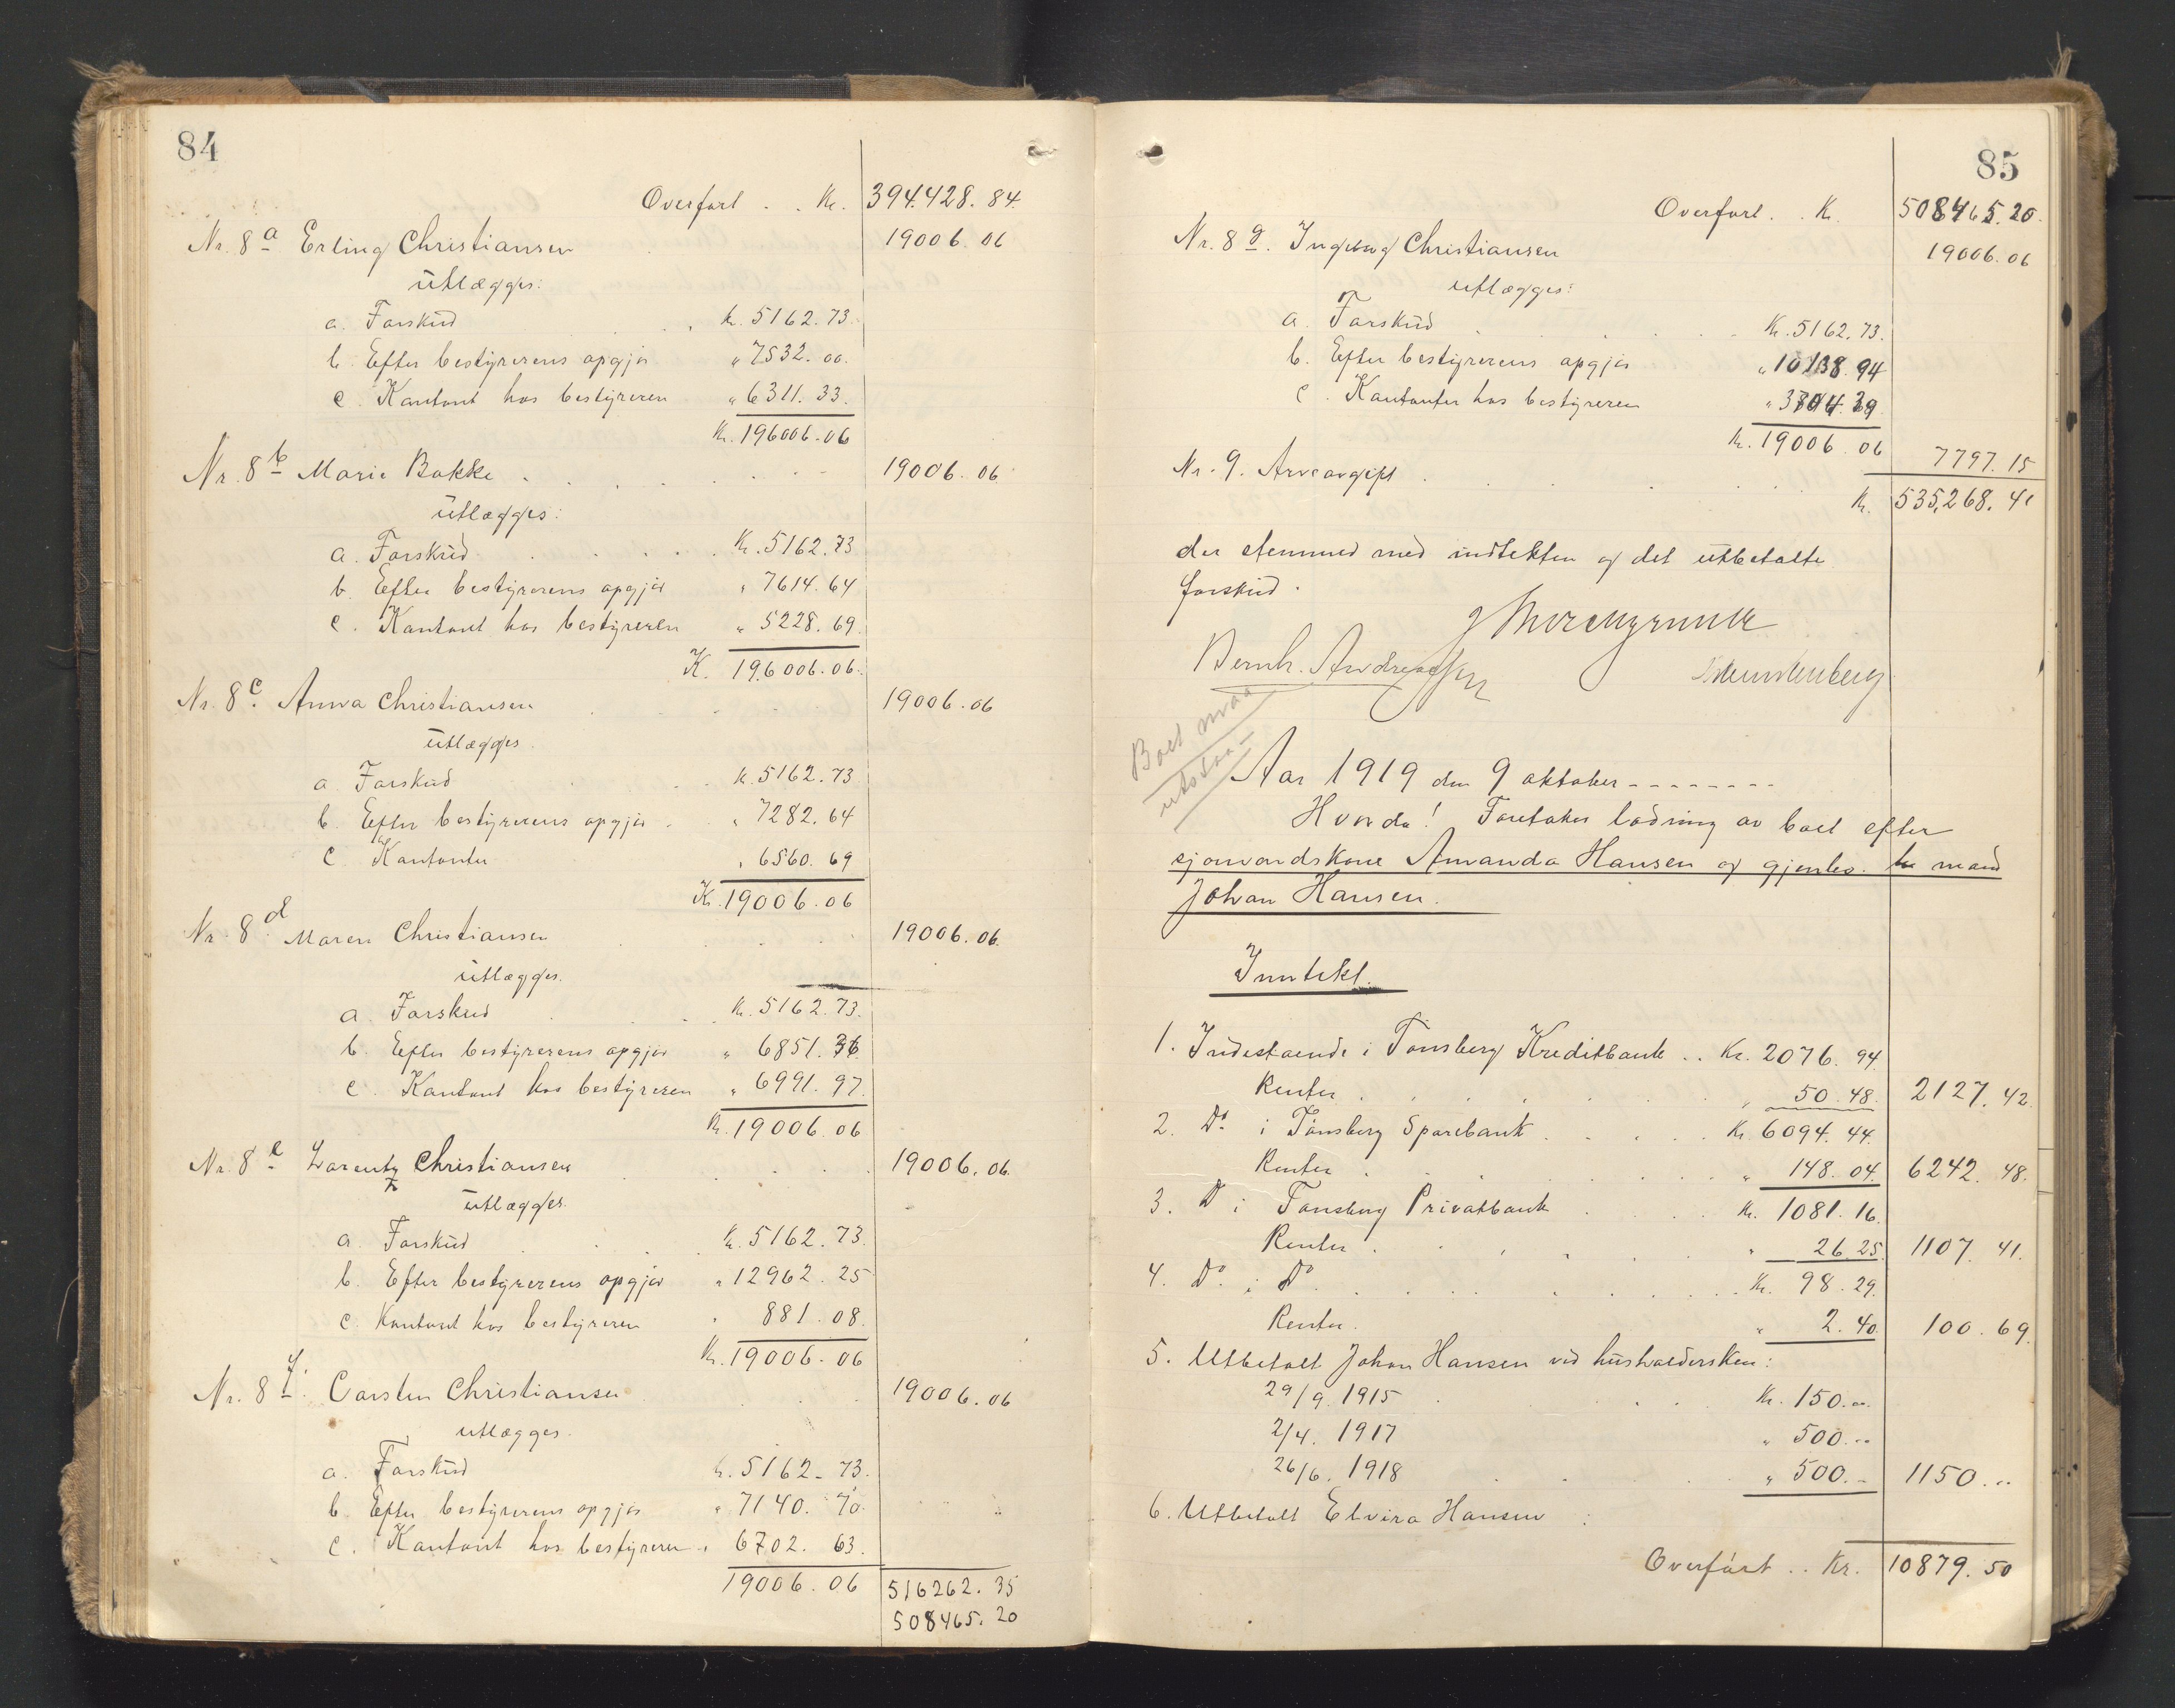 84
Overført . . Kr. 394.428. 84
Nr. 8 a Erling Christiansen 19006. 06
utlægges:
a. Forskud Kr. 5162. 73.
b. Efter bestyrerens opgjør " 7532. 00.
c. Kontant hos bestyreren " 6311. 33.
Kr. 196006. 06
Nr. 8 b Marie Bakke . . . . 19006. 06
utlægges:
a. Forskud . . . . Kr. 5162. 73
b. Efter bestyrerens opgjør " 7614. 64
c. Kontant hos bestyreren " 5228. 69.
K. 196006. 06.
Nr. 8 c. Anna Christiansen 19006. 06
utlægges
a Forskud Kr. 5162. 73
b. Efter bestyrerens opgjør . " 7282. 64
c Kontanter " 6560. 69
Kr. 19006. 06
Nr. 8 d. Maren Christiansen 19006. 06.
utlægges.
a. Forskud Kr. 5162. 73.
b. Efter bestyrerens opgjør " 6851. 36.
c. Kontant hos bestyreren " 6991. 97.
Kr. 19006. 06
Nr. 8 e Lorentz Christiansen 19006. 06.
utlægges.
a. Forskud Kr. 5162. 73.
b. Efter bestyrerens opgjør " 12962. 25
c. Kontant hos bestyreren " 881. 08.
Kr. 19006. 06
Nr. 8 f. Carsten Christiansen 19006. 06
utlægges.
a. Forskud Kr. 5162. 73.
b. Efter bestyrerens opgjør " 7140. 70.
c. Kontant hos bestyreren " 6702. 63.
19006. 06 516262. 35
508465. 20
85
Overført. . Kr. 508465. 20.
Nr. 8 g. Ingeborg Christiansen 19006. 06
utlægges:
a. Forskud Kr. 5162. 73.
b. Efter bestyrerens opgjør " 10138. 94
c. Kontanter hos bestyreren " 3704. 39
Kr. 19006. 06
Nr. 9. Arveavgift . . . . 7797. 15
Kr. 535,268. 41
der stemmed med indtekten og det utbetalte
forskud.
Bernh. Andreassen
Boet maa
utstaa
Aar 1919 den 9 oktober - - - - - - - -
Hvorda! Foretokes lodning av boet efter
sjømandskone Amanda Hansen og gjenlev. mand
Johan Hansen.
Inntekt.
1. Indestaaende i Tønsberg Kreditbank . . Kr. 2076. 94
Renter . . . . " 50. 48. 2127. 42
2. Do i Tønsberg Sparebank . . . . Kr. 6094. 44.
Renter . . . . " 148. 04. 6242. 48.
3. Do i Tønsberg Privatbank . . . . Kr. 1081. 16.
Renter . . . . " 26. 25. 1107. 41.
4. Do i Do . . . . Kr. 98. 29.
Renter. " 2. 40. 100. 69.
5. Utbetalt Johan Hansen ved husholdersken:
29/9 1915 Kr. 150. --
2/4. 1917 " 500. --
26/6. 1918 " 500. -- 1150. --
6. Utbetalt Elvira Hansen :
Overført . . Kr. 10879. 50